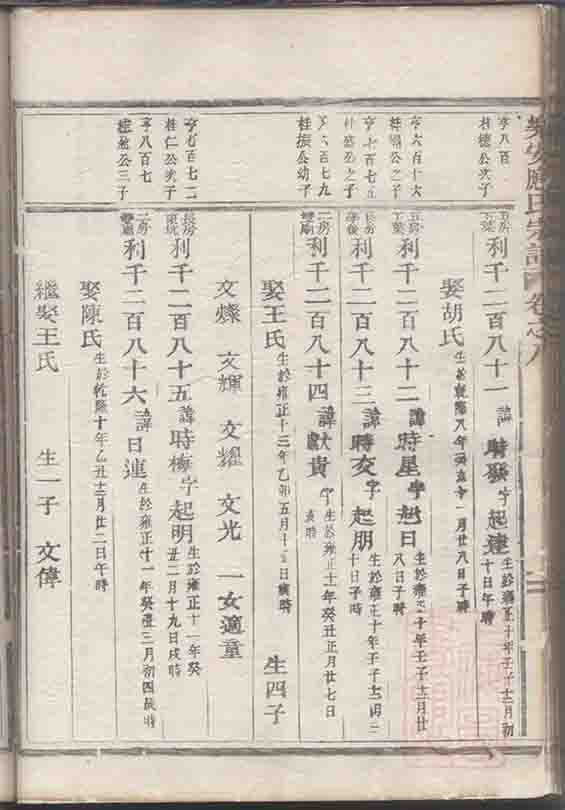 樂安應氏宗譜 卷之八
亨八百
桂德公次子
五房
利千二百八十一 諱時發字起達 生於雍正十年壬子十二月初
十日午時
娶胡氏 生於乾隆八年癸亥十一月廿八日子時
亨六百十六
公之子
五房
利千二百八十二 諱時星字起日 生於雍正十年壬子十二月廿
八日子時
亨七百七
公之子
長房
利千二百八十三 諱時交字起朋 生於雍正十年壬子十二月
十日子時
六百七九
桂振公幼子
二房
利千二百八十四 諱獻貴字 生於雍正十一年癸丑正月廿七日
時
娶王氏 生於雍正十三年乙卯五月十日時 生四子
文燦 文輝 文耀 文光 一女適童
亨七百七二
桂仁公次子
長房
利千二百八十五 諱時梅字起明 生於雍正十一年癸
丑二月十九日戌時
亨八百七
桂公三子
二房
利千二百八十六 諱日連 生於雍正十一年癸丑三月初四辰時
娶陳氏 生於乾隆十年乙丑十二月廿二日午時
繼娶王氏 生一子 文偉